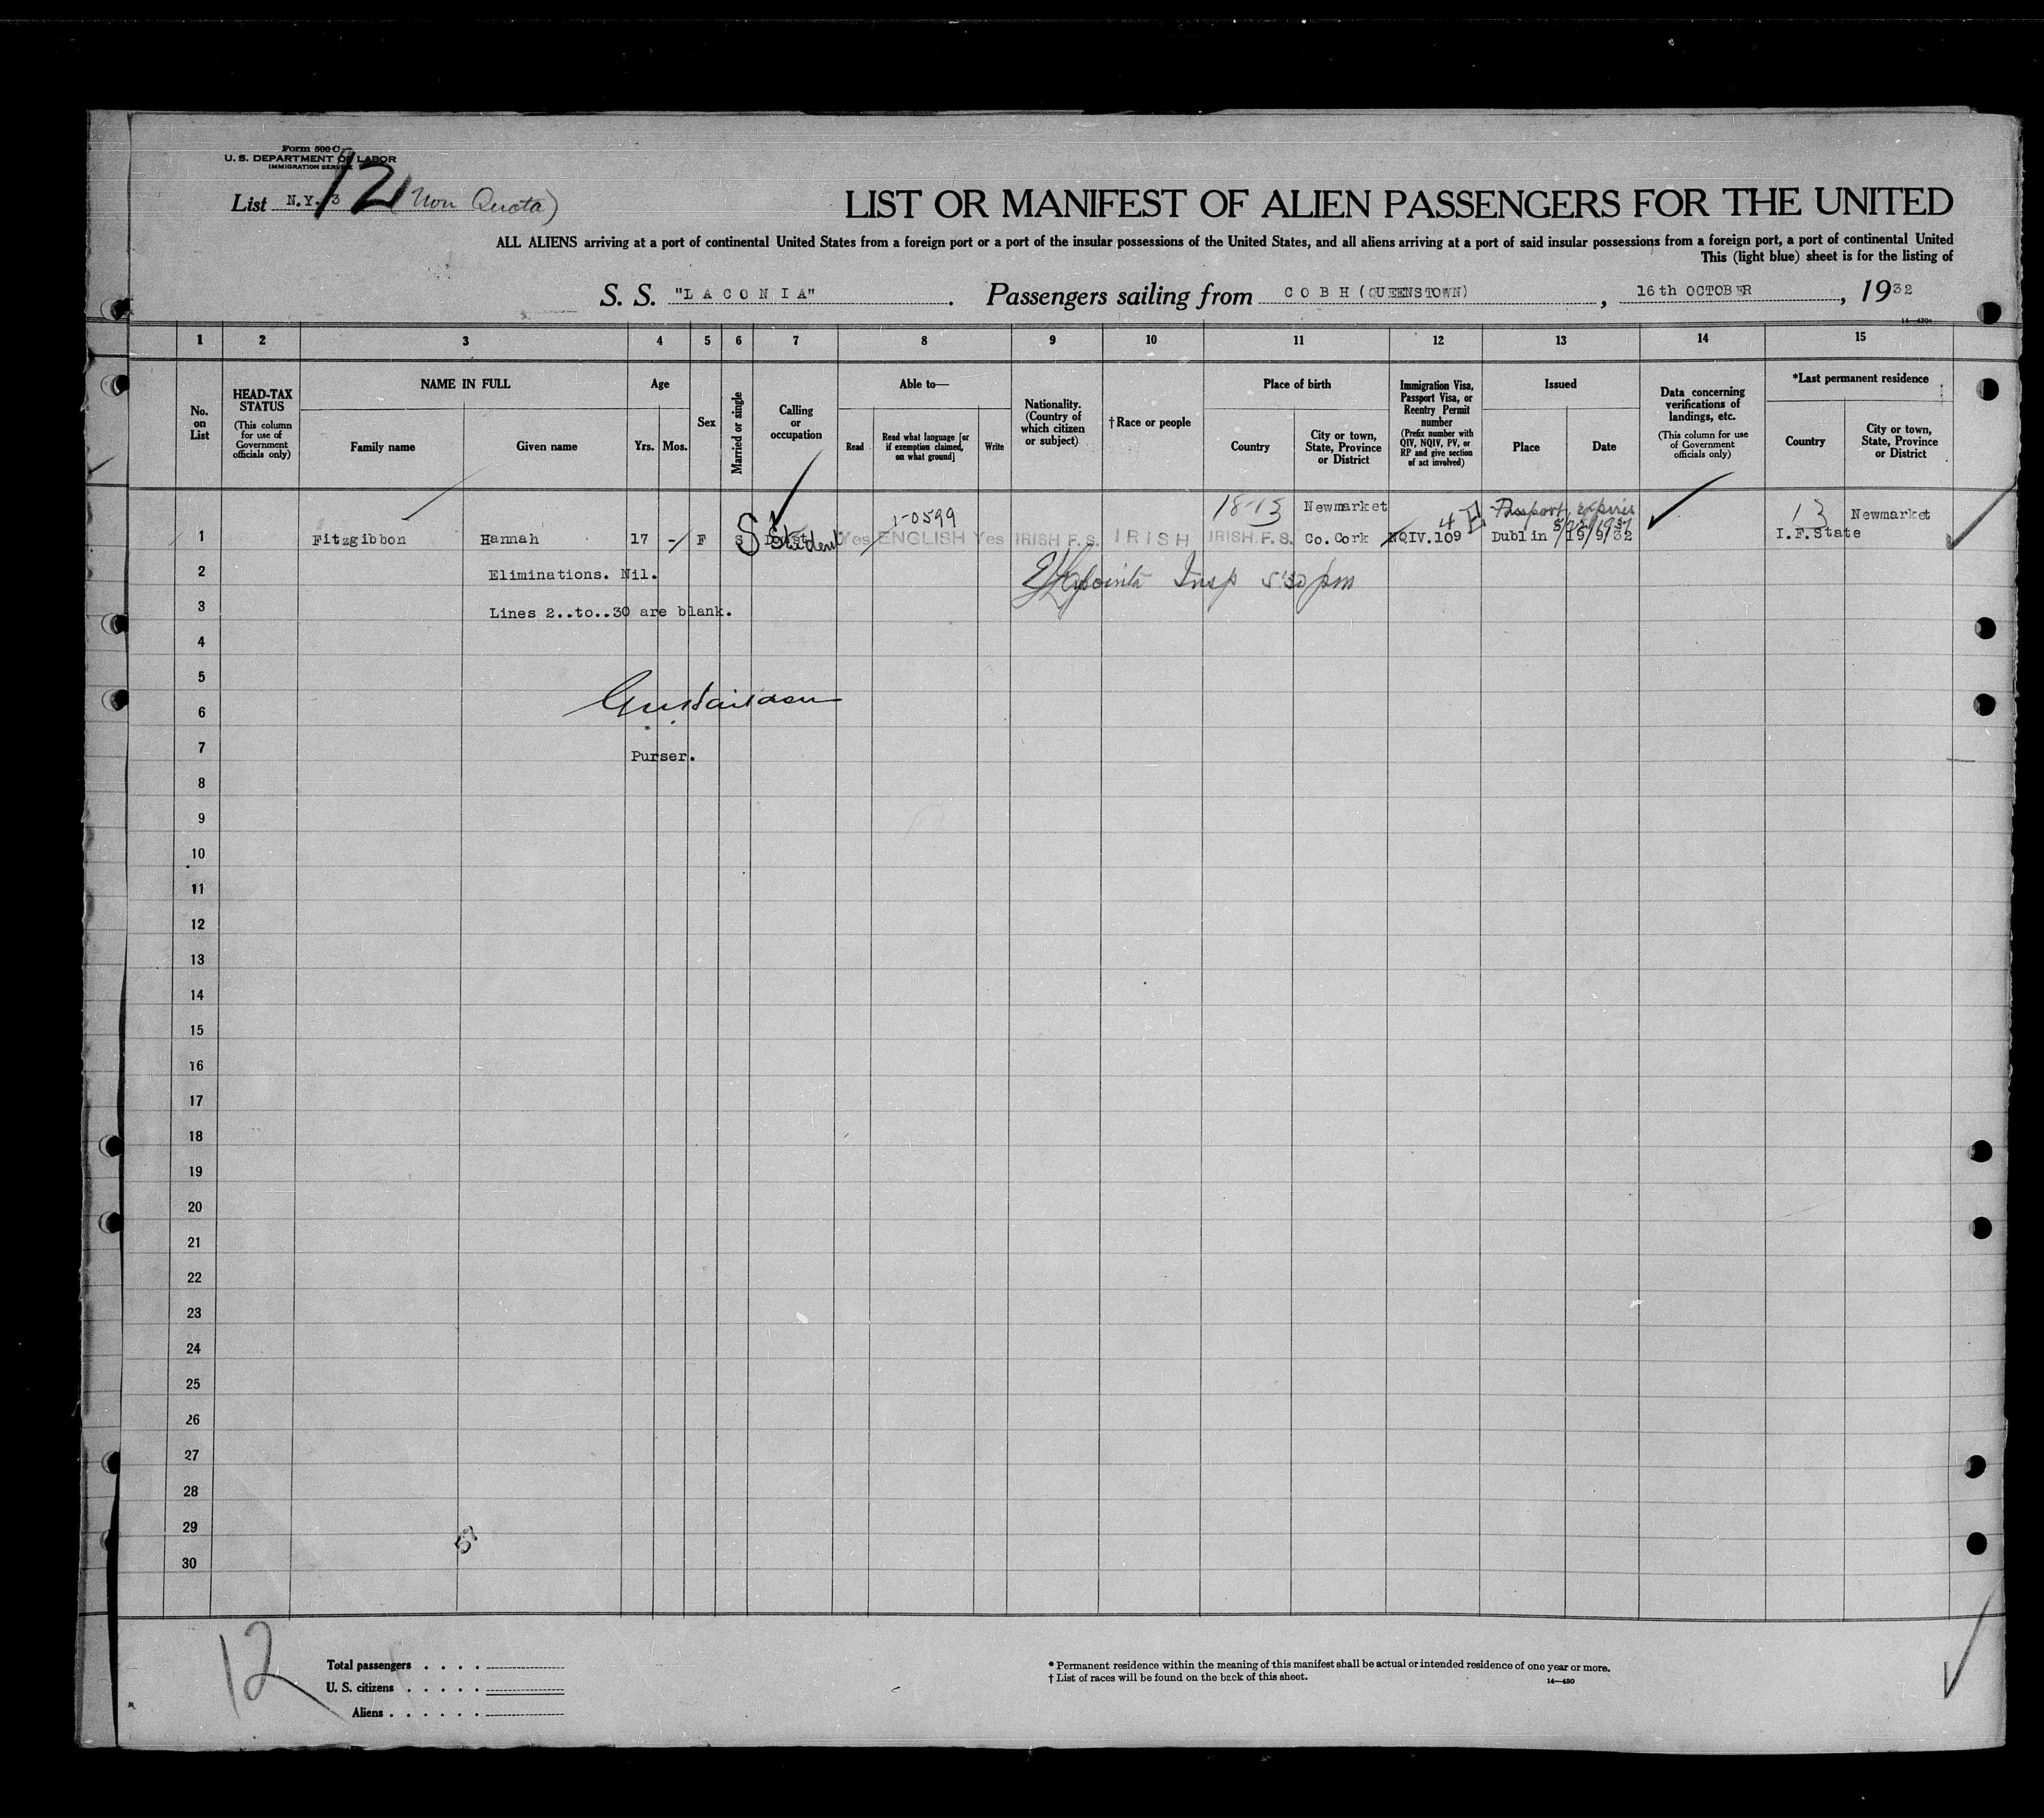 Form 500 C
U. S. DEPARTMENT OF LABOR
IMMIGRATION SERVICE
List N.Y. 3 12 (Non Quota)
LIST OR MANIFEST OF ALIEN PASSENGERS FOR THE UNITED
ALL ALIENS arriving at a port of continental United States from a foreign port or a port of the insular possessions of the United States, and all aliens arriving at a port of said insular possessions from a foreign port, a port of continental United
This (light blue) sheet is for the listing of
S. S. "LACONIA". Passengers sailing from COBH (QUEENSTOWN), 16th OCTOBER, 1932
14—430
1 2 3 4 5 6 7 8 9 10 11 12 13 14 15
No. on List
HEAD-TAX STATUS
(This column for use of Government officials only)
NAME IN FULL
Family name
Given name
Age
Yrs. Mos.
Sex
Married or single
Calling or occupation
Able to—
Read
Read what language [or if exemption claimed, on what ground]
Write
Nationality. (Country of which citizen or subject)
† Race or people
Place of birth
Country
City or town, State, Province or District
Immigration Visa, Passport Visa, or Reentry Permit number
(Prefix number with QIV, NQIV, PV, or RP and give section of act involved)
Issued
Place
Date
Data concerning verifications of landings, etc.
(This column for use of Government officials only)
*Last permanent residence
Country
City or town, State, Province or District
1-0599 18-13 Newmarket 4 E Passport expires 13 Newmarket
1 Fitzgibbon Hannah 17 - F S S Student Yes ENGLISH Yes IRISH F. S. IRISH IRISH. F. S. Co. Cork NQIV.109 Dublin 19/9/32 I.F.State
2 Eliminations. Nil. Insp 530 pm
3 Lines 2..to..30 are blank.
4
5
6
7 Purser.
8
9
10
11
12
13
14
15
16
17
18
19
20
21
22
23
24
25
26
27
28
29
30
12
Total passengers . . . .
U. S. citizens . . . . .
Aliens . . . . . .
* Permanent residence within the meaning of this manifest shall be actual or intended residence of one year or more.
† List of races will be found on the back of this sheet.
14—430